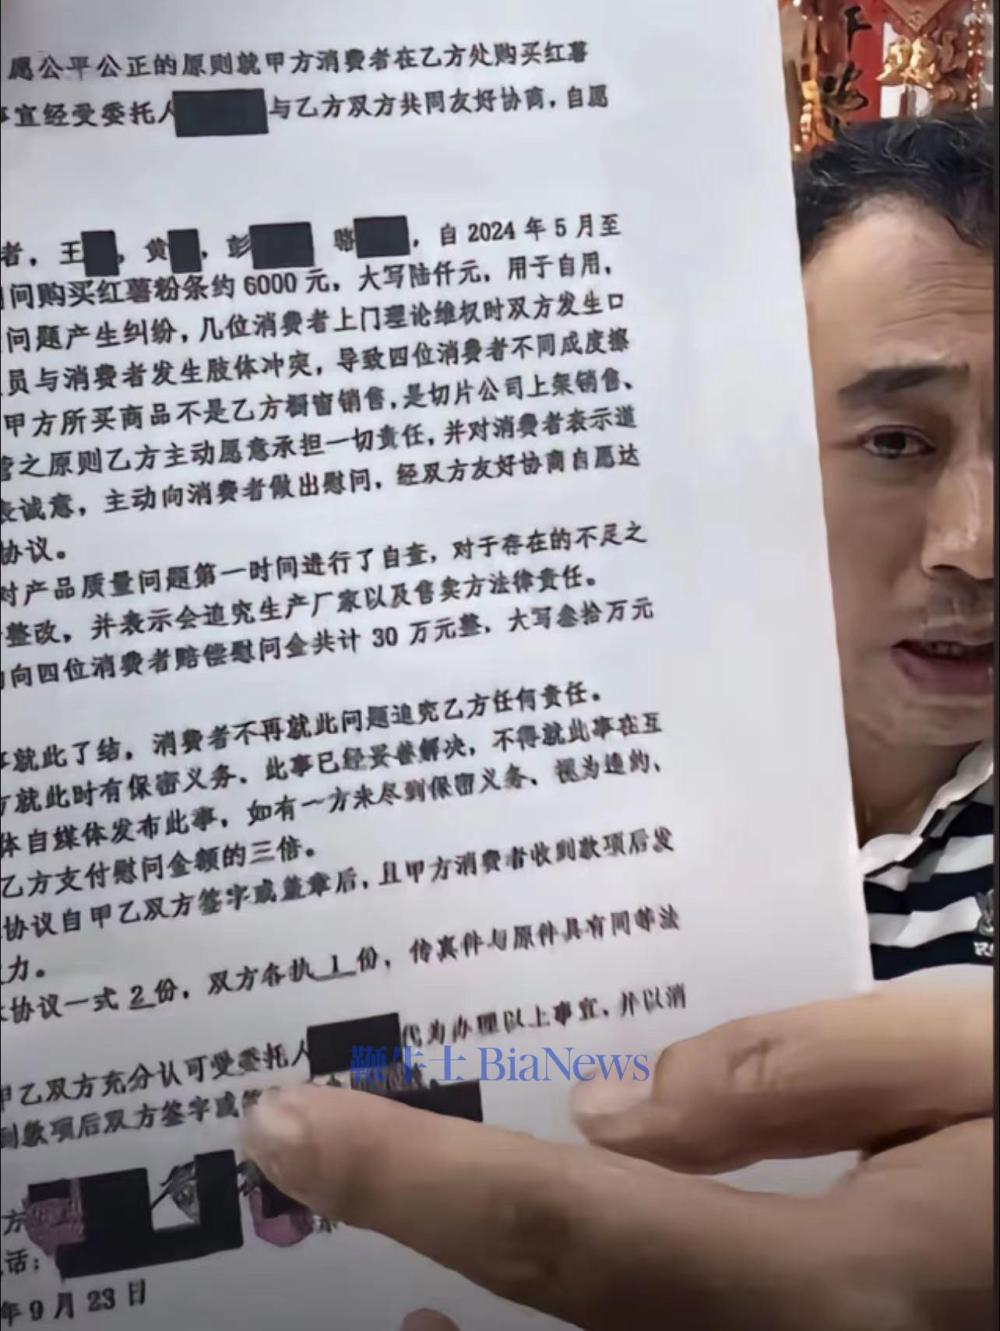 愿公平公正的原则就甲方消费者在乙方处购买红薯
事宜经受委托人 与乙方双方共同友好协商，自愿
者，王 ，黄 ，彭 骆 ，自 2024 年 5 月至
间购买红薯粉条约 6000 元，大写陆仟元，用于自用，
问题产生纠纷，几位消费者上门理论维权时双方发生口
员与消费者发生肢体冲突，导致四位消费者不同成度擦
甲方所买商品不是乙方橱窗销售，是切片公司上架销售、
之原则乙方主动愿意承担一切责任，并对消费者表示道
表诚意，主动向消费者做出慰问，经双方友好协商自愿达
协议。
对产品质量问题第一时间进行了自查，对于存在的不足之
整改，并表示会追究生产厂家以及售卖方法律责任。
向四位消费者赔偿慰问金共计 30 万元整，大写叁拾万元
就此了结，消费者不再就此问题追究乙方任何责任。
方就此时有保密义务、此事已经妥善解决，不得就此事在互
体自媒体发布此事，如有一方未尽到保密义务、视为违约、
乙方支付慰问金额的三倍。
协议自甲乙双方签字或盖章后，且甲方消费者收到款项后发
力。
协议一式 2 份，双方各执 1 份，传真件与原件具有同等法
甲乙双方充分认可受委托人 代为办理以上事宜、并以消
到款项后双方签字或
鞭牛士 BiaNews
方
话：
年 9 月 23 日